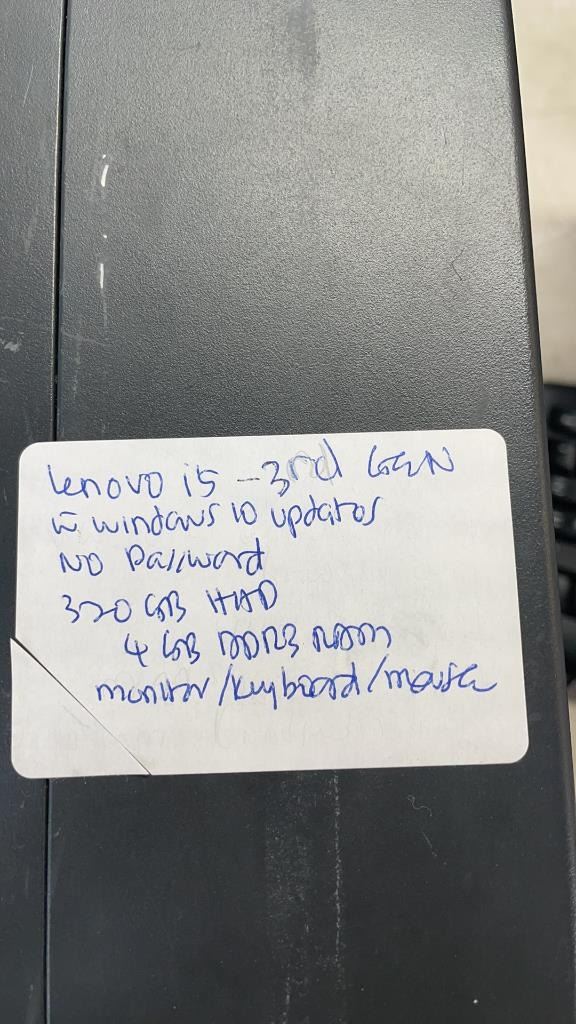 Lenovo i5 - 3rd GEN
w windows 10 updates
NO Password
320 GB HDD
4 GB DDR3 RAM
monitor/keyboard/mouse